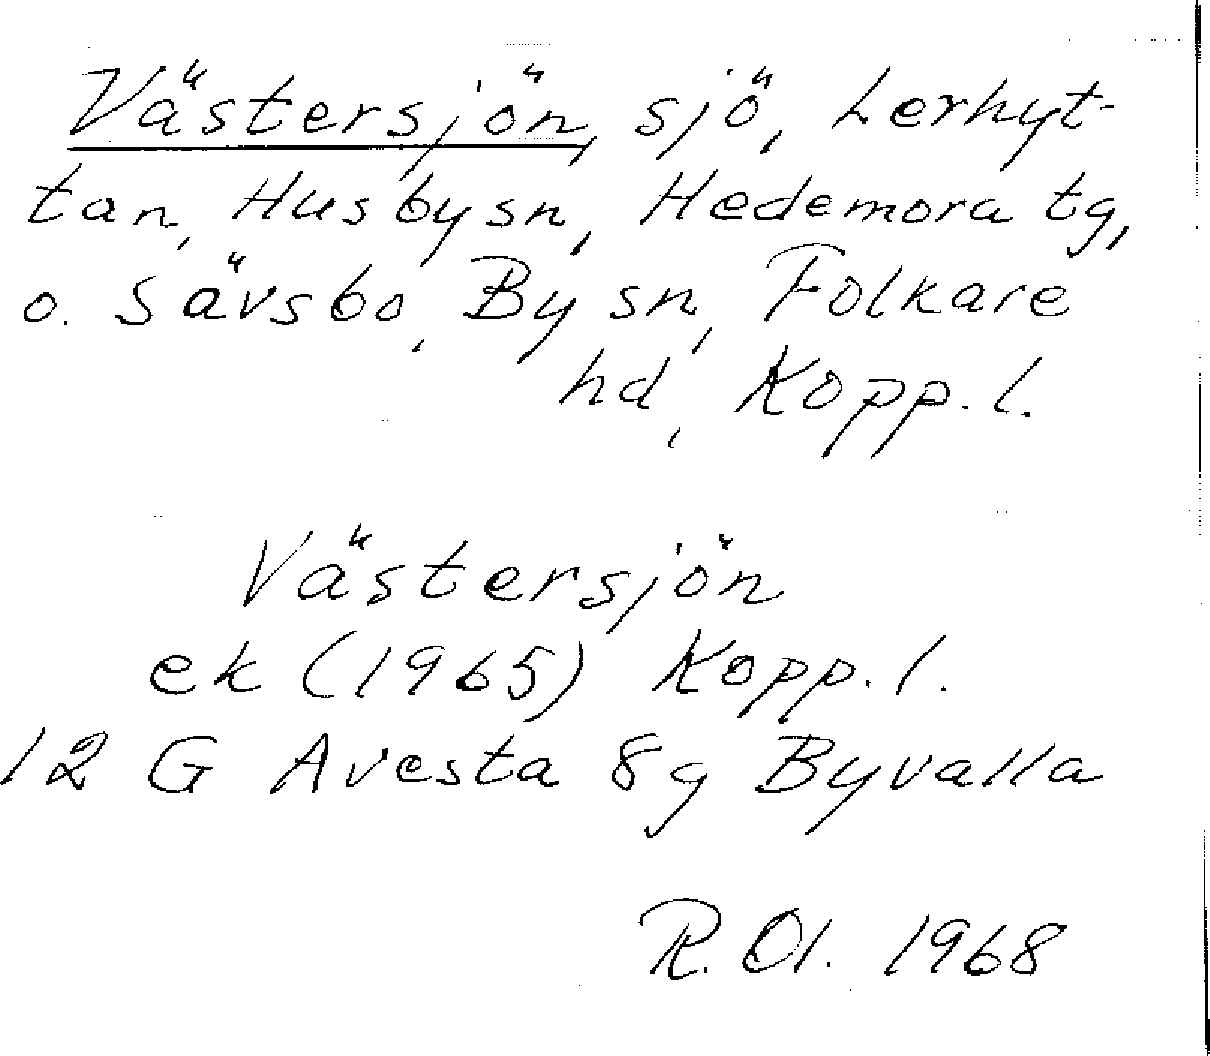 Västersjön, sjö, Lerhyt-
tan, Husby sn, Hedemora tg,
o. Sävsbo, By sn, Folkare
hd, Kopp. l.
Västersjön
ek (1965) Kopp. l.
12 G Avesta 8g Byvalla
R. Ol. 1968